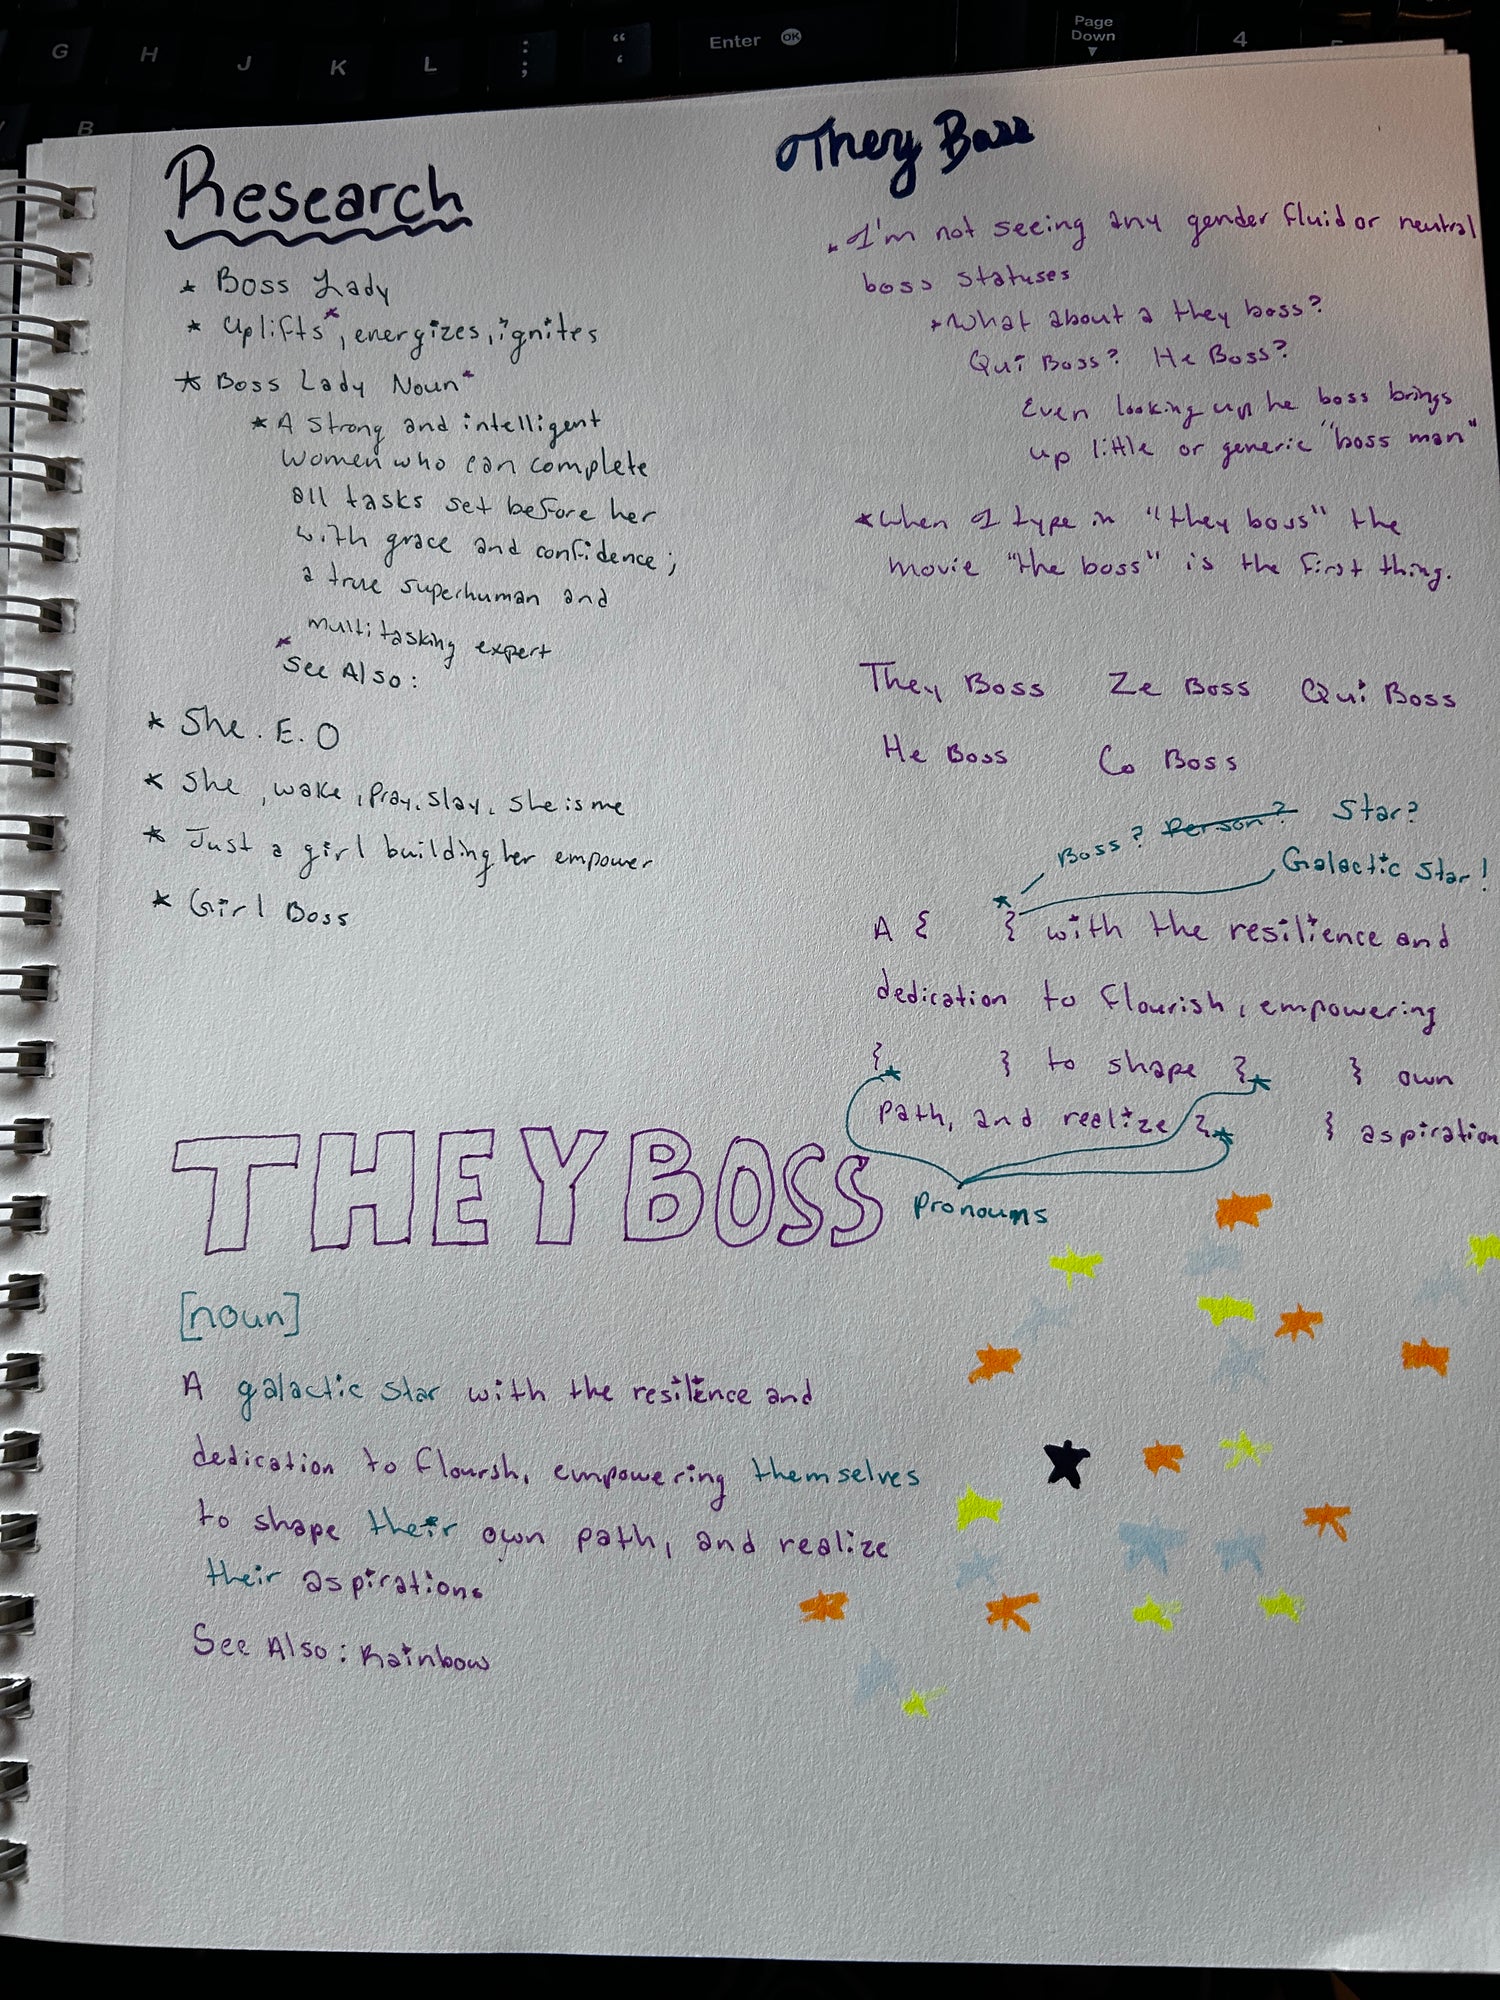 G H J K L : ; " ' Enter OK Page Down 4
B
Research
* Boss Lady
* Uplifts*, energizes, ignites
* Boss Lady Noun*
* A strong and intelligent
women who can complete
all tasks set before her
with grace and confidence;
a true superhuman and
multitasking expert
* See Also:
* She. E. O
* She, wake, pray, slay, she is me
* Just a girl building her empower
* Girl Boss
They Boss
* I'm not seeing any gender fluid or neutral
boss statuses
* What about a they boss?
Qui Boss? He Boss?
Even looking up he boss brings
up little or generic "boss man"
* When I type in "they boss" the
movie "the boss" is the first thing.
They Boss Ze Boss Qui Boss
He Boss Co Boss
Boss? Person? Star?
Galactic Star!
A { } with the resilience and
dedication to flourish, empowering
{ } to shape { } own
path, and realize { } aspiration
pronouns
THEY BOSS
[noun]
A galactic star with the resilence and
dedication to floursh, empowering themselves
to shape their own path, and realize
their aspirations
See Also: Rainbow